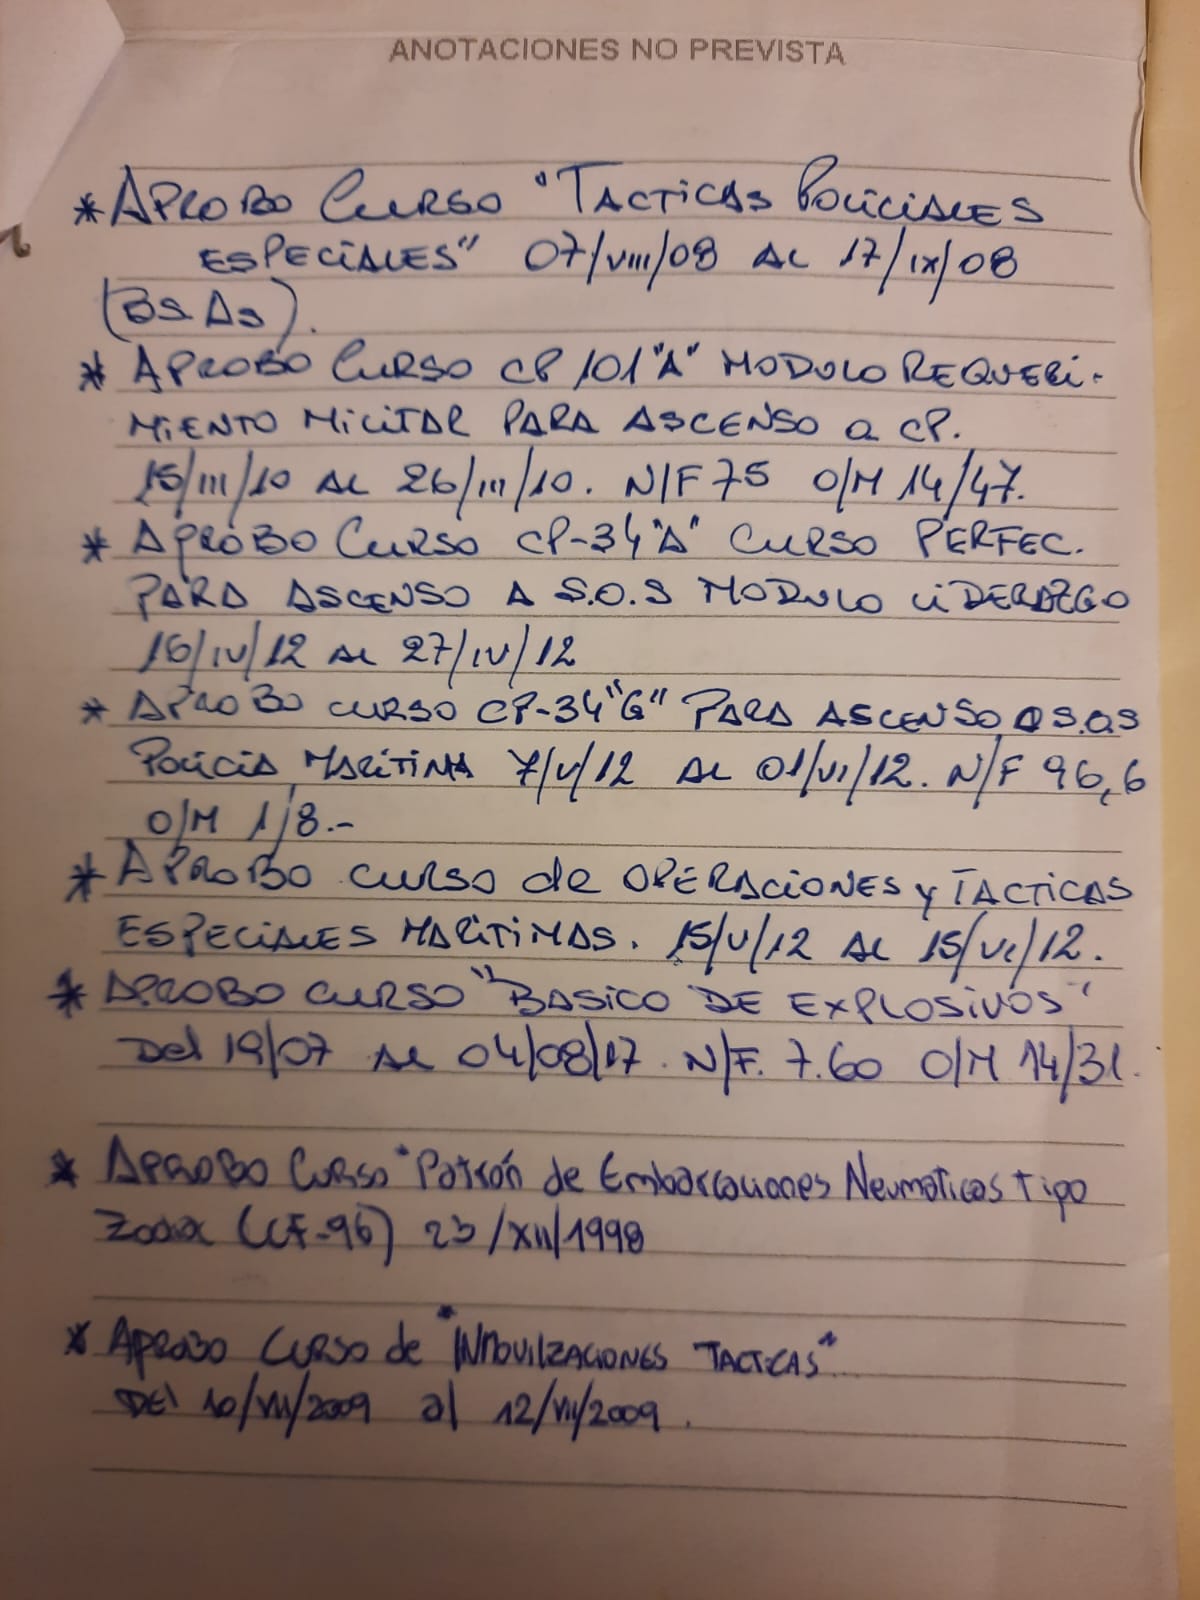 ANOTACIONES NO PREVISTA
* APROBO CURSO "TACTICAS POLICIALES
ESPECIALES" 07/VIII/08 AL 17/IX/08
(BS. AS).
* APROBO CURSO CP 101 "A" MODULO REQUERI-
MIENTO MILITAR PARA ASCENSO a CP.
15/III/10 AL 26/III/10. N/F 75 O/M 14/47.
* APROBO CURSO CP-34 "A" CURSO PERFEC.
PARA ASCENSO A S.O.S MODULO LIDERAZGO
16/IV/12 AL 27/IV/12
* APROBO CURSO CP-34 "G" PARA ASCENSO A S.O.S
POLICIA MARITIMA 7/V/12 AL 01/VI/12. N/F 96,6
O/M 1/8.-
* APROBO CURSO de OPERACIONES y TACTICAS
ESPECIALES MARITIMAS. 15/V/12 AL 15/VI/12.
* APROBO CURSO "BASICO DE EXPLOSIVOS"
Del 19/07 AL 04/08/17. N/F. 7.60 O/M 14/31.
* APROBO CURSO "Patrón de Embarcaciones Neumaticas tipo
(CF-96) 23/XII/1998
* APROBO CURSO de "INMOVILZACIONES TACTICAS"
DEl 10/VII/2009 al 12/VII/2009.